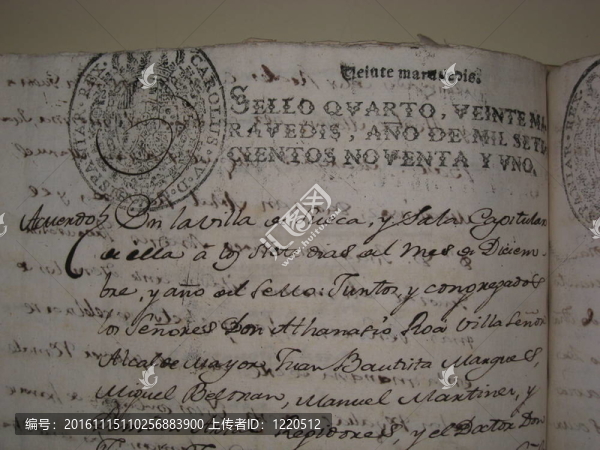 Veinte maravedis.
CAROLUS IV D.G. HISPANIAR. REX.
SELLO QVARTO, VEINTE MA
RAVEDIS, AÑO DE MIL SETE
CIENTOS NOVENTA Y VNO.
Acuerdo En la villa de Sueca, y Sala Capitular
de ella á los siete dias del Mes de Diciem-
bre, y año del Sello: Juntos, y congregados
los Señores Don Athanasio Roa Villa Señor
Alcalde Mayor, Juan Bautista Marques,
Miguel Beltran, Manuel Martinez, y
Regidores, y el Doctor Don
编号：20161115110256883900 上传者ID：1220512